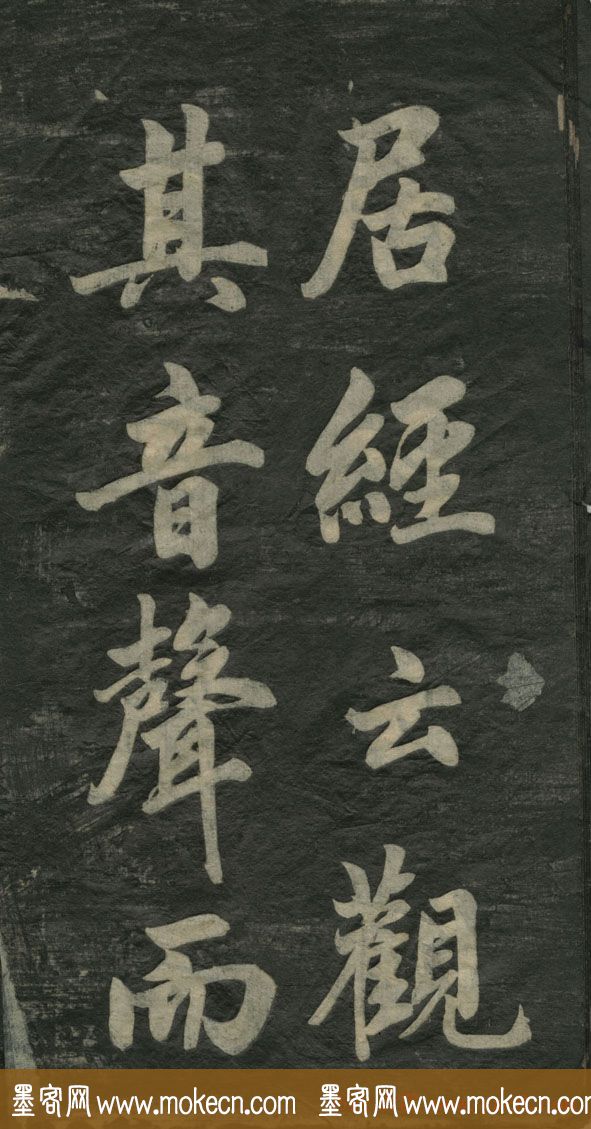 居經云觀
其音聲而
墨客网 www.mokecn.com 墨客网 www.mokecn.com